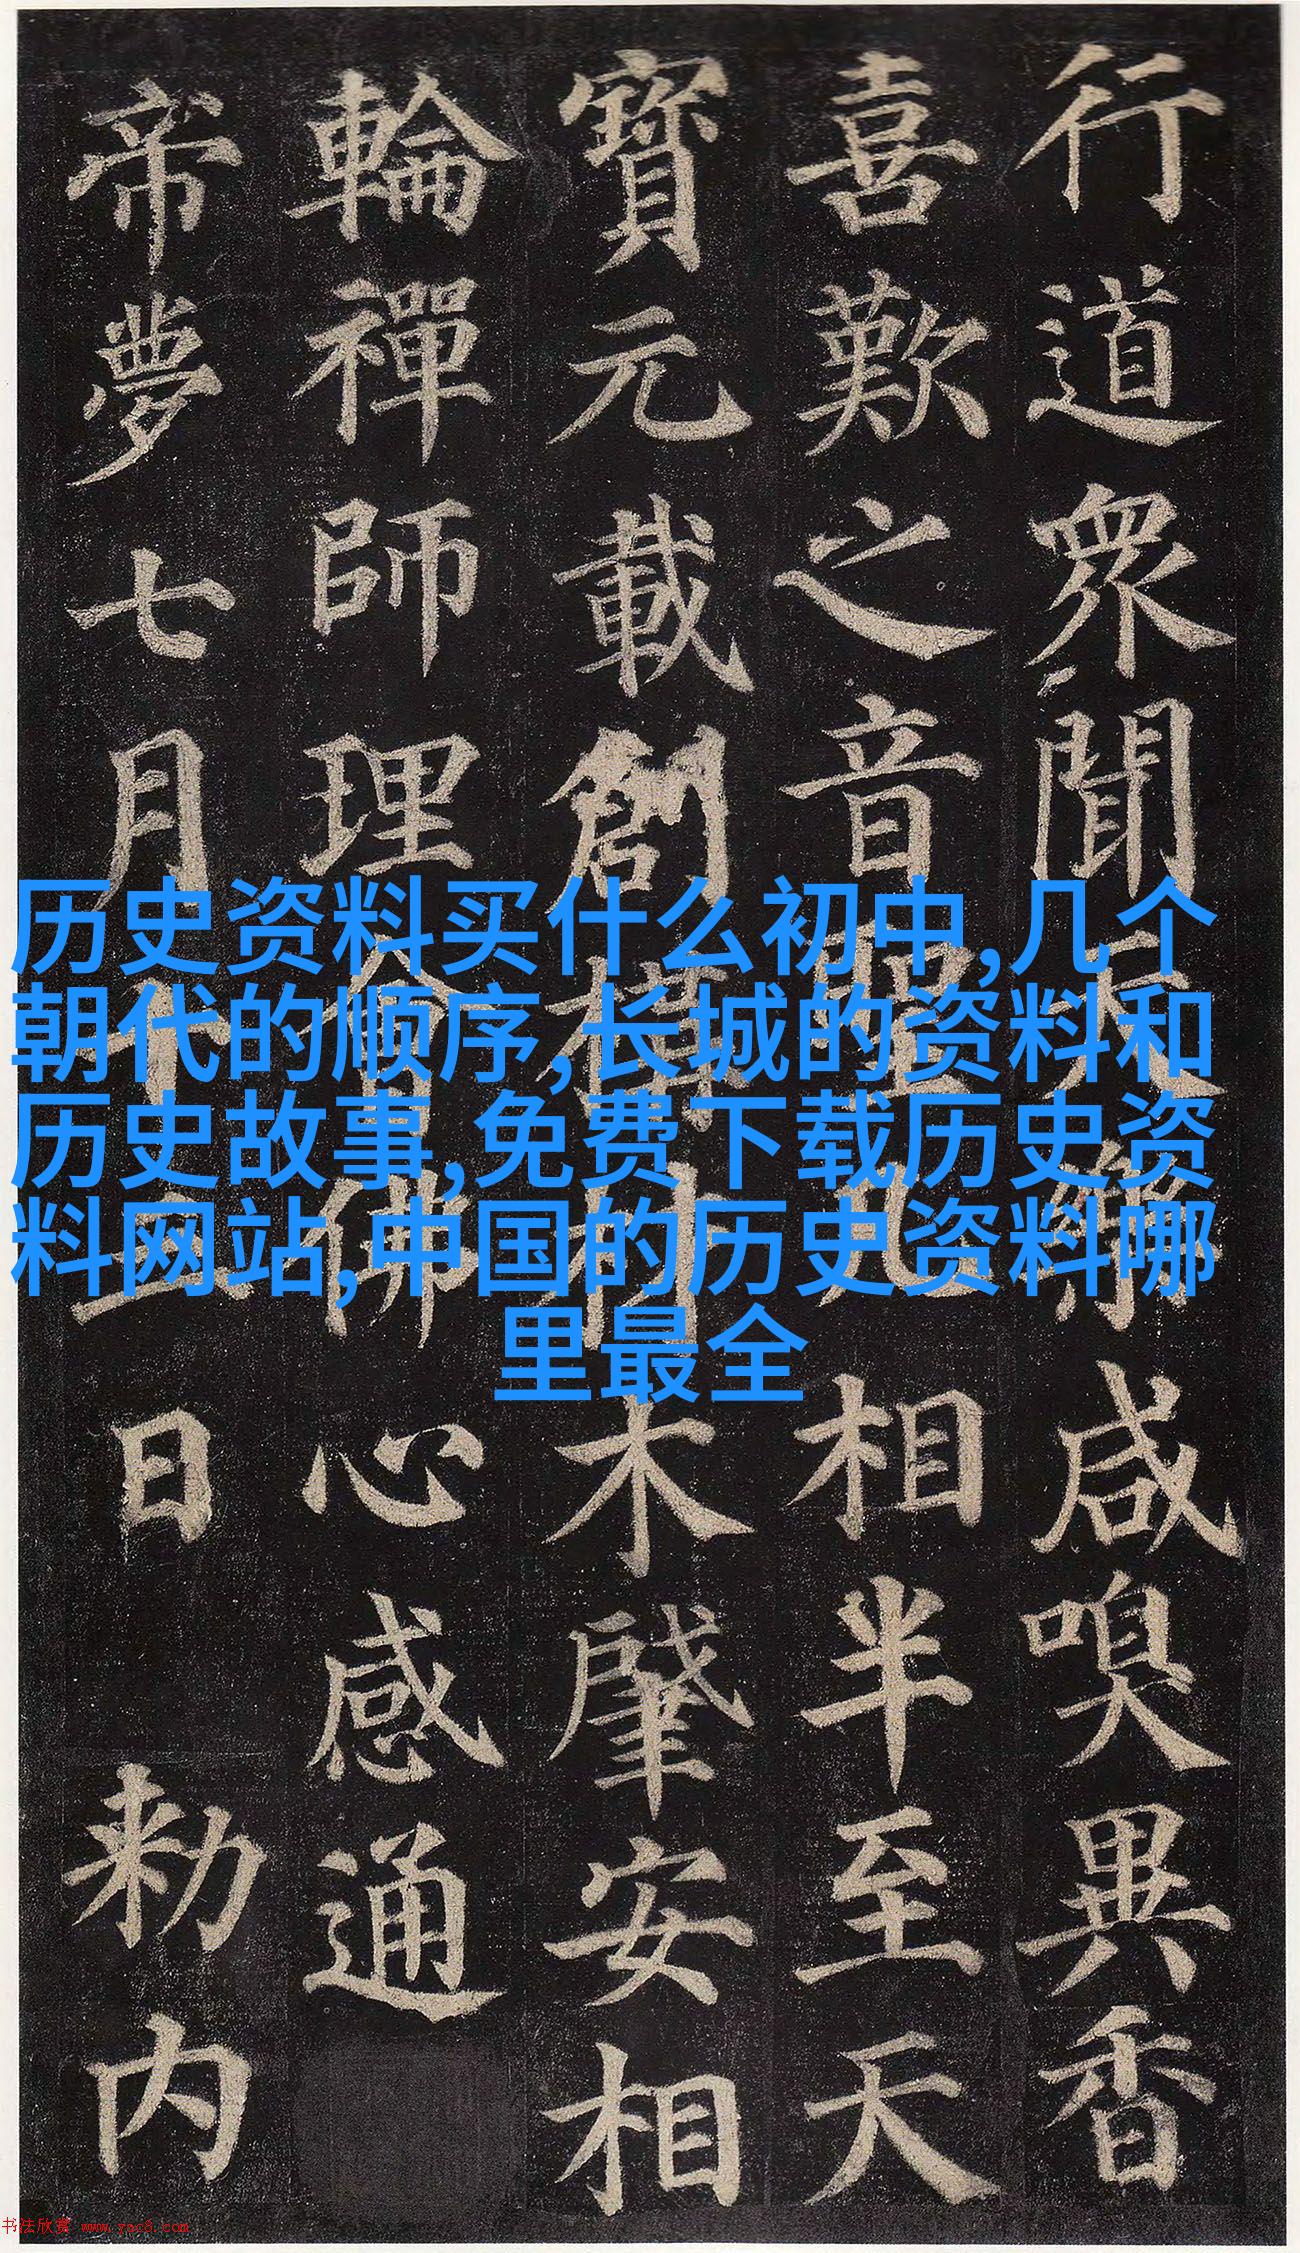 行道眾聞天樂咸嗅異香
喜歎之音聖凡相半至天
寶元載創構材木肇安相
輪禪師理合佛心感通
帝夢七月十三日敕內
历史资料买什么初中,几个
朝代的顺序,长城的资料和
历史故事,免费下载历史资
料网站,中国的历史资料哪
里最全
书法欣赏 www.yac8.com